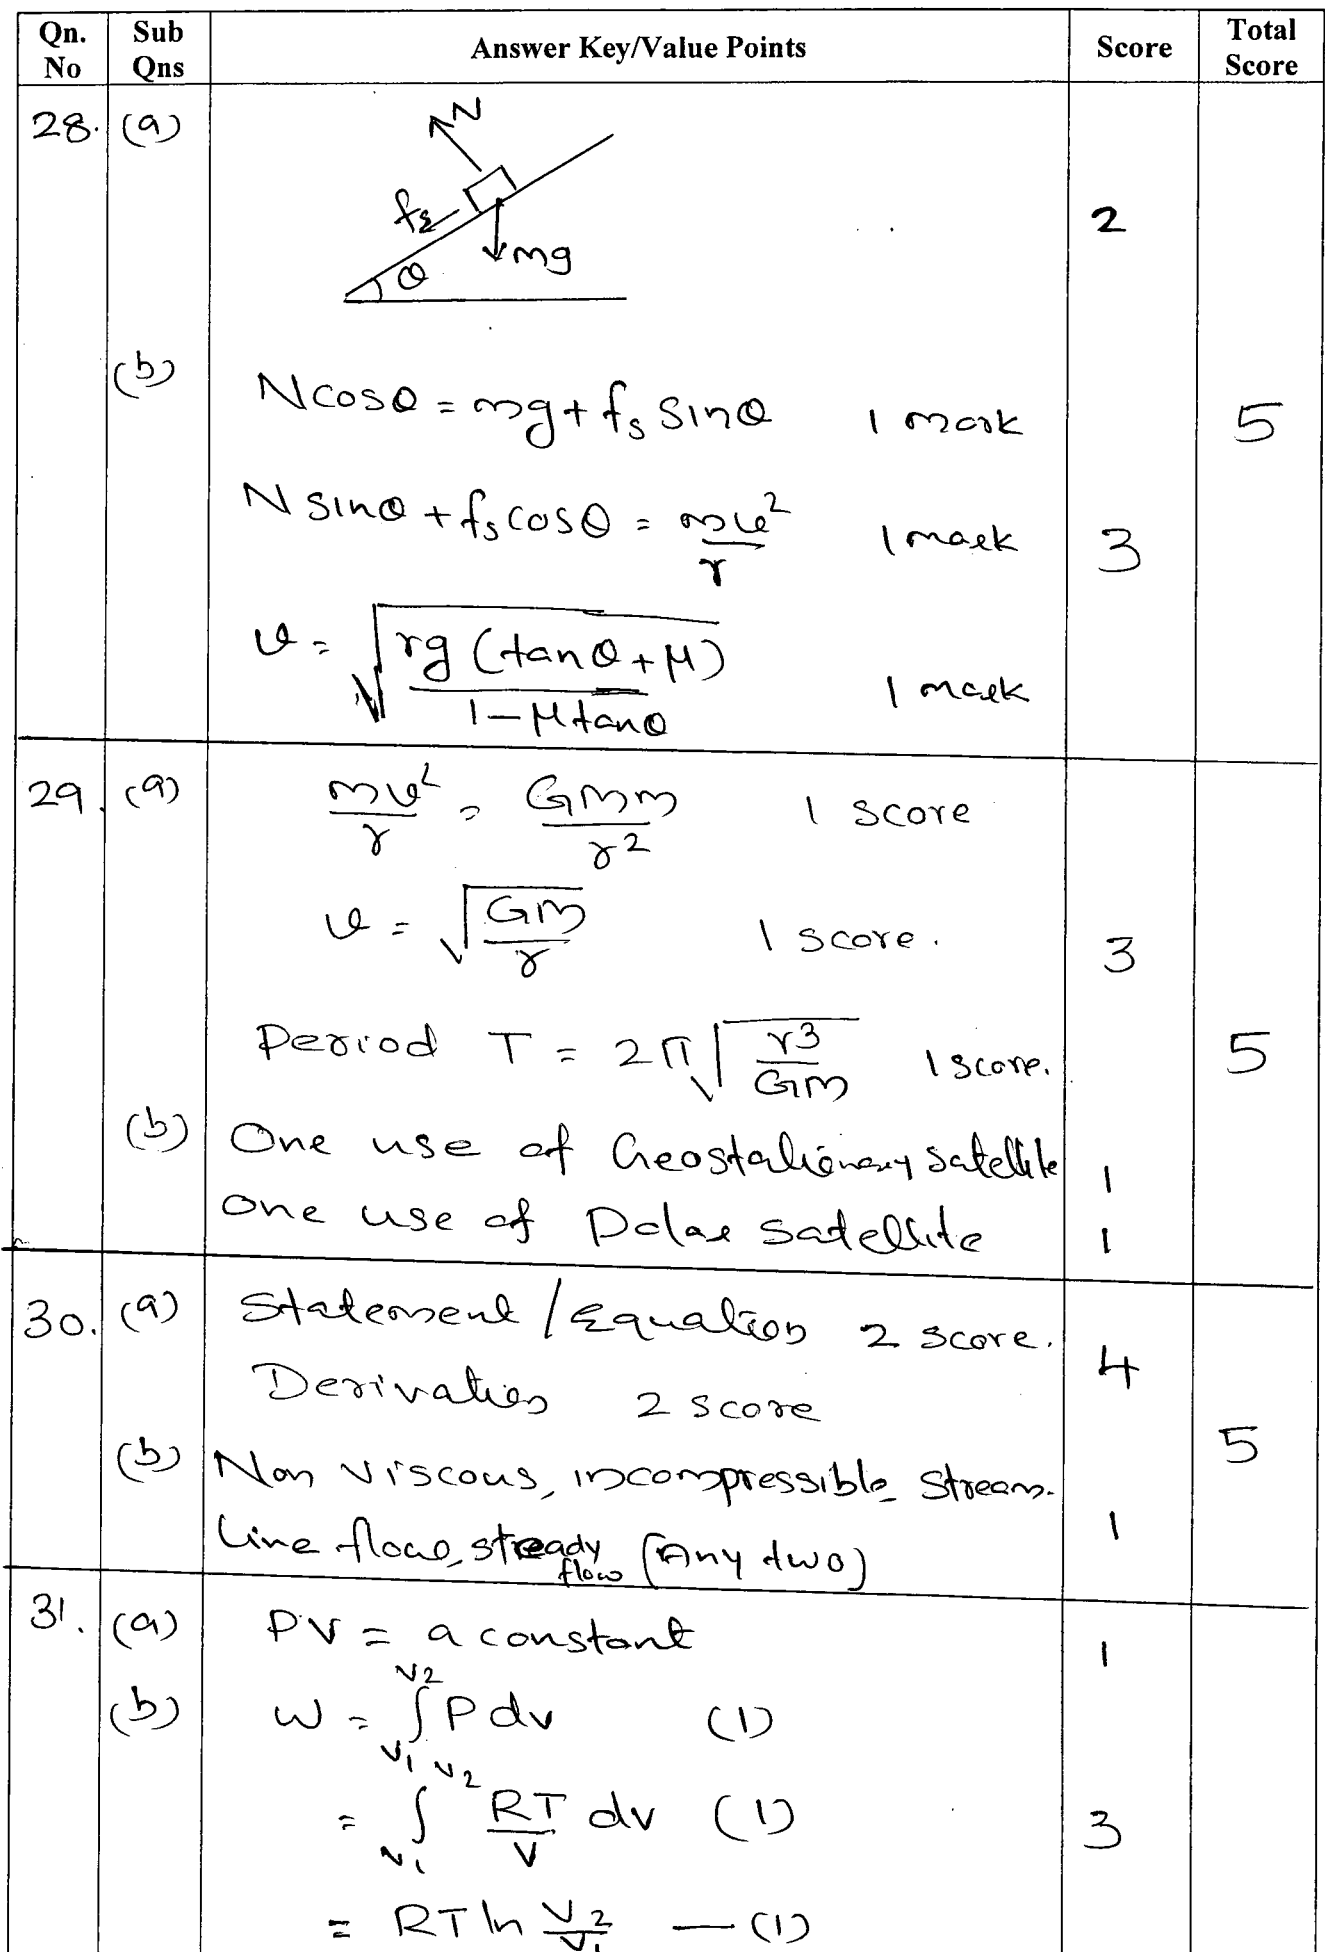 Qn. No Sub Qns Answer Key/Value Points Score Total Score
28. (a)
N
fs
mg
θ
2
(b) Ncosθ = mg + fs sinθ 1 mark 5
N sinθ + fs cosθ = mv²/r 1 mark 3
v = √(rg (tanθ + μ) / 1 - μ tanθ) 1 mark
29. (a) mv²/r = GMm/r² 1 score
v = √(GM/r) 1 score. 3
Period T = 2π √(r³/GM) 1 score. 5
(b) One use of Geostationary satellite 1
One use of Polar satellite 1
30. (a) Statement / Equation 2 score. 4
Derivation 2 score
5
(b) Non viscous, incompressible, stream-
line flow, steady flow (Any two) 1
31. (a) PV = a constant 1
(b) W = ∫V₁V₂ P dv (1)
= ∫V₁V₂ RT/V dv (1) 3
= RT ln V₂/V₁ — (1)